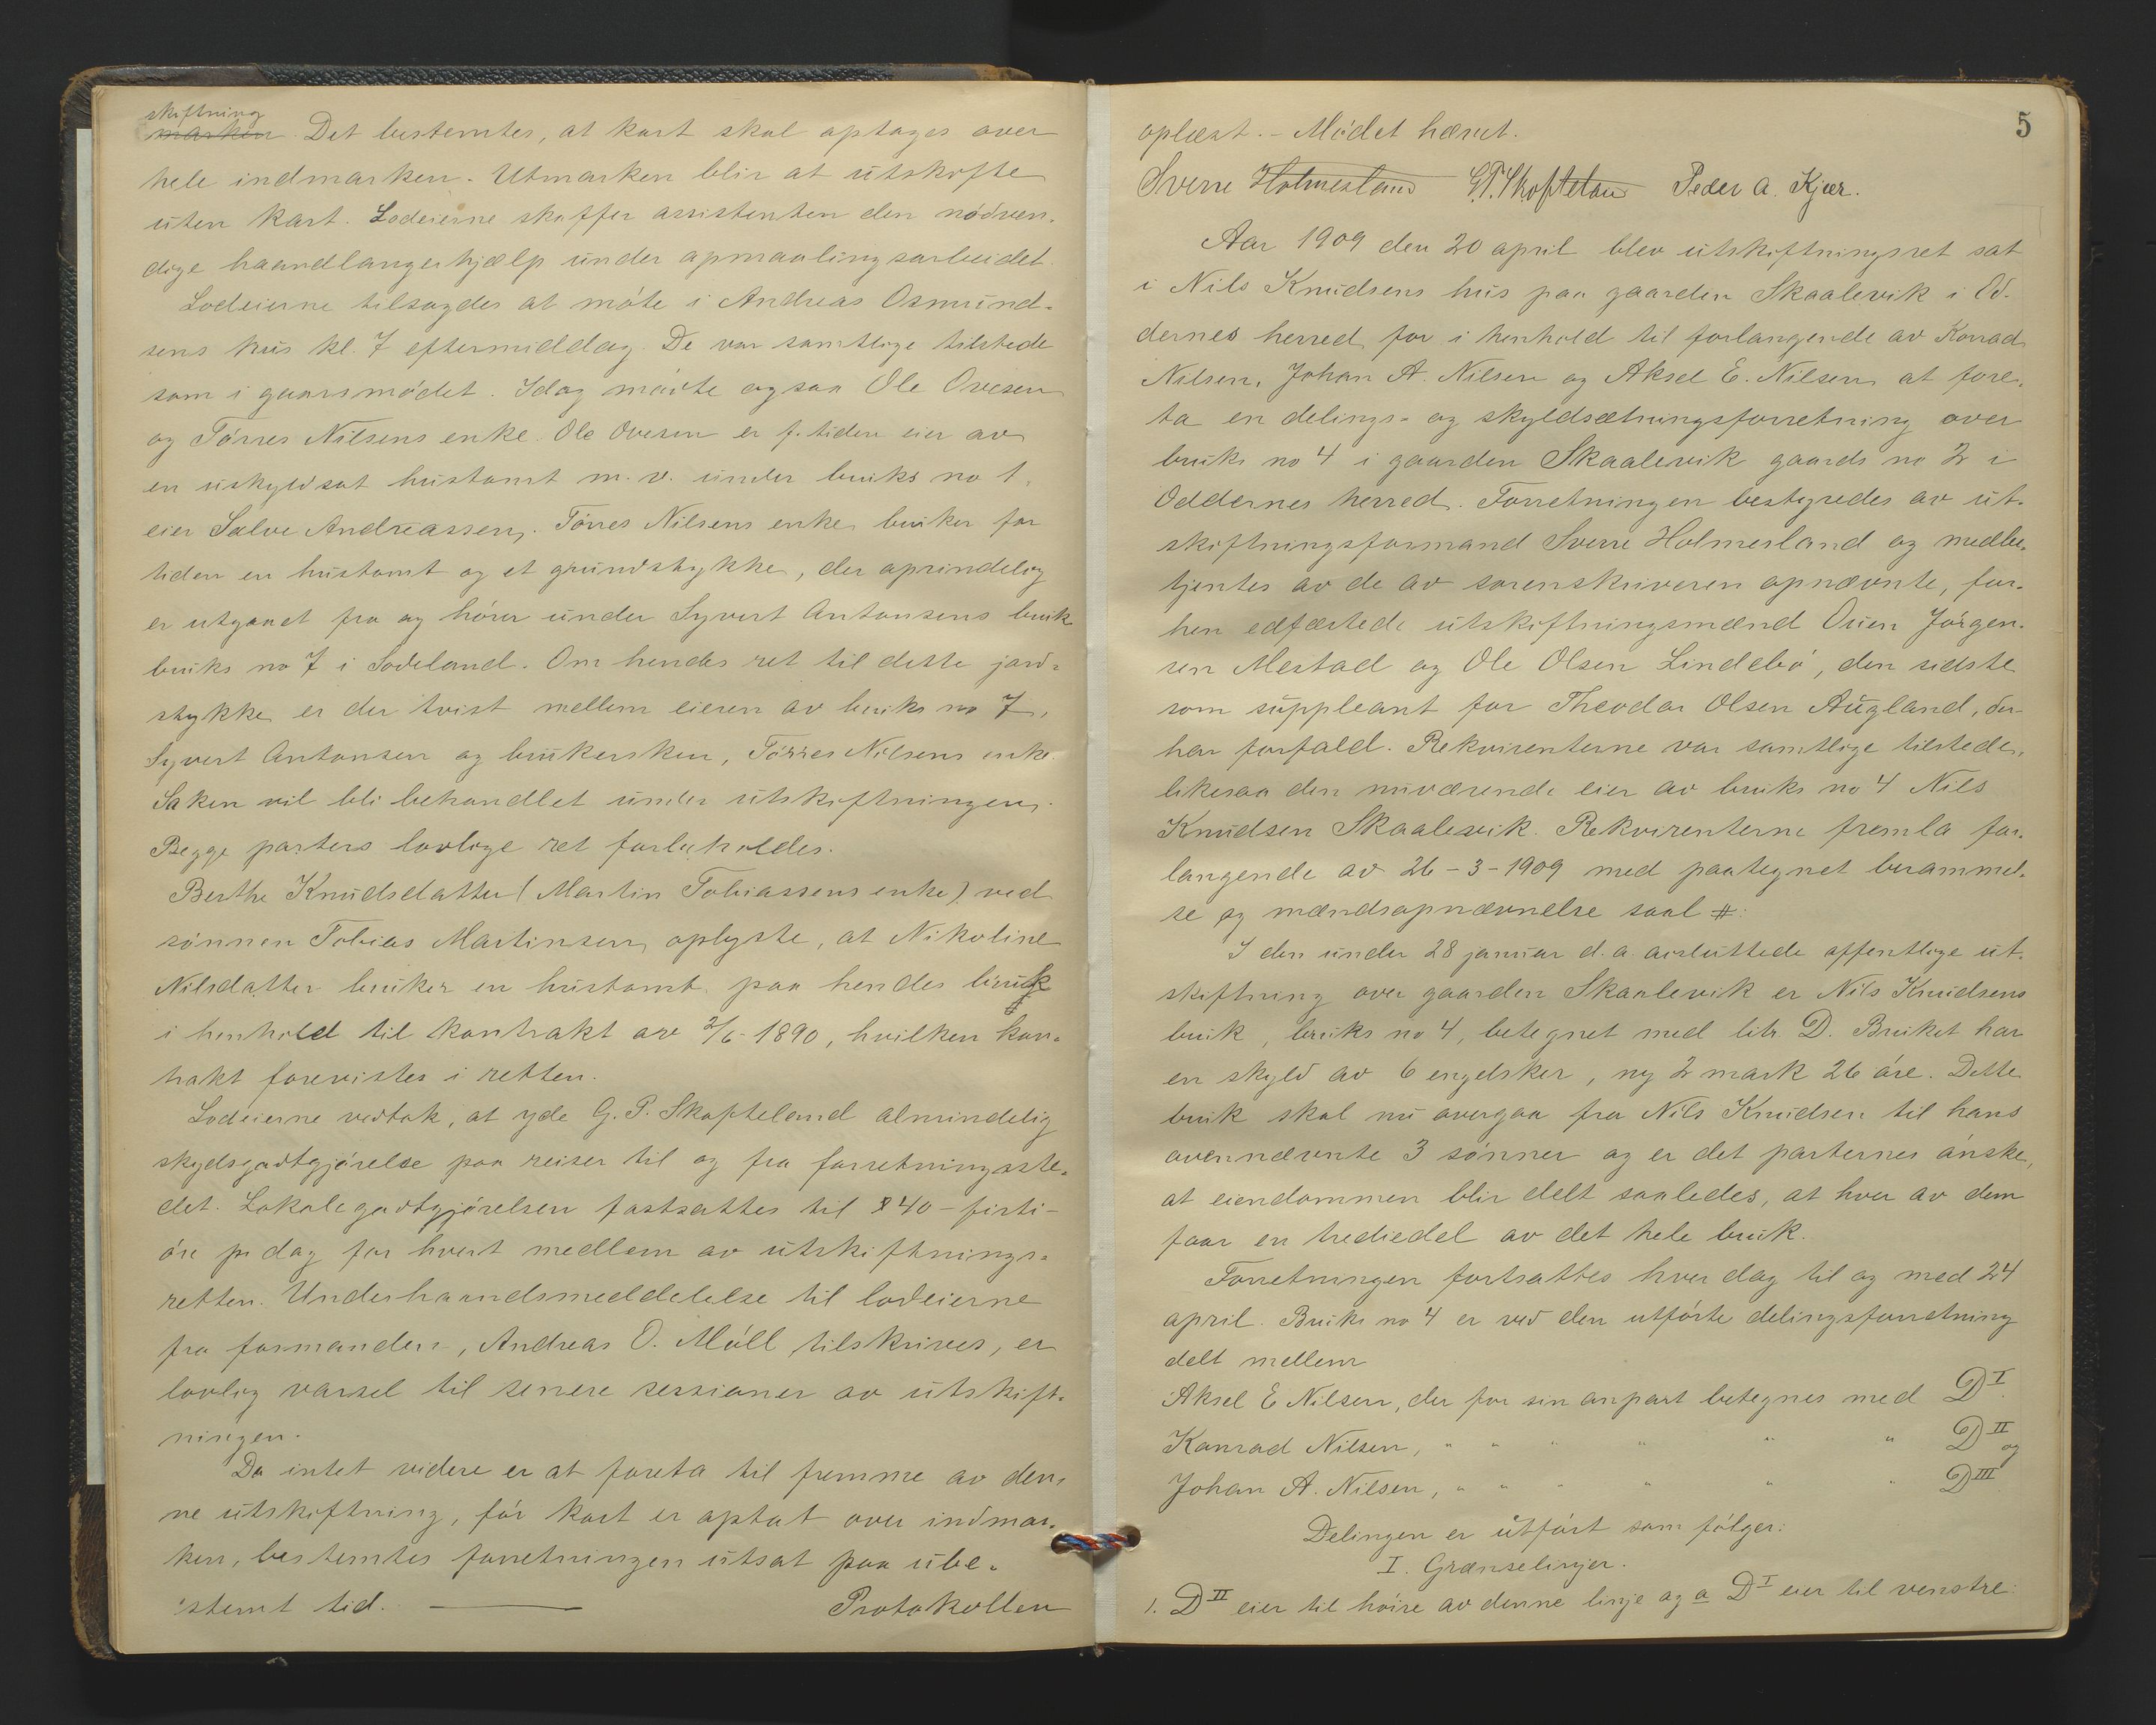 skiftning
marken. Det bestemtes, at kart skal optages over
hele indmarken. Utmarken blir at utskifte
uten kart. Lodeierne skaffer assistenten den nödven-
dige haandlangerhjælp under opmaalingsarbeidet.
Lodeierne tilsagdes at möte i Andreas Osmund-
sens hus kl. 7 eftermiddag. De var samtlige tilstede
som i gaarsmödet. Idag mödte ogsaa Ole Ovesen
og Törres Nilsens enke. Ole Ovesen er f. tiden eier av
en uskyldsat hustomt m.v. under bruks no 1,
eier Salve Andreassen. Törres Nilsens enke bruker for
tiden en hustomt og et grundstykke, der oprindelig
er utgaaet fra og hörer under Syvert Antonsens bruk
bruks no 7 i Sodeland. Om hendes ret til dette jord-
stykke er der tvist mellem eieren av bruks no 7,
Syvert Antonsen og brukersken, Törres Nilsens enke.
Saken vil bli behandlet under utskiftningen.
Begge parters lovlige ret forbeholdes.
Berthe Knudsdatter (Martin Tobiassens enke) ved
sönnen Tobias Martinsen oplyste, at Nikoline
Nilsdatter bruker en hustomt paa hendes bruk
i henhold til kontrakt av 2/6 1890, hvilken kon-
trakt forevistes i retten.
Lodeierne vedtok, at yde G. P. Skofteland almindelig
skydsgodtgjörelse paa reiser til og fra forretningsste-
det. Lokalegodtgjörelsen fastsattes til 40 - firti -
öre pr dag for hvert medlem av utskiftnings-
retten. Underhaandsmeddelelse til lodeierne
fra formanden, Andreas O. Möll tilskrives, er
lovlig varsel til senere sessioner av utskift-
ningen.
Da intet videre er at foreta til fremme av den-
ne utskiftning, för kart er optat over indmar-
ken, bestemtes forretningen utsat paa ube-
stemt tid. Protokollen
5
oplæst. - Mödet hævet.
Sverre Holmesland G.P. Skofteland Peder A. Kjær.
Aar 1909 den 20 april blev utskiftningsret sat
i Nils Knudsens hus paa gaarden Skaalevik i Od-
dernes herred for i henhold til forlangende av Konrad
Nilsen, Johan A. Nilsen og Aksel E. Nilsen at fore-
ta en delings- og skyldsætningsforretning over
bruks no 4 i gaarden Skaalevik gaards no 2 i
Oddernes herred. Forretningen bestyredes av ut-
skiftningsformand Sverre Holmesland og medbe-
tjentes av de av sorenskriveren opnævnte, for-
hen edfæstede utskiftningsmænd Ouen Jörgen-
sen Mestad og Ole Olsen Lindebö, den sidste
som suppleant for Theodor Olsen Augland, der
har forfald. Rekvirenterne var samtlige tilstede,
likesaa den nuværende eier av bruks no 4 Nils
Knudsen Skaalevik. Rekvirenterne fremla for-
langende av 26-3-1909 med paategnet berammel-
se og mændsopnævnelse saal #:
I den under 28 januar d.a. avsluttede offentlige ut-
skiftning over gaarden Skaalevik er Nils Knudsens
bruk, bruks no 4, betegnet med litr. D. Bruket har
en skyld av 6 engelsker, ny 2 mark 26 öre. Dette
bruk skal nu overgaa fra Nils Knudsen til hans
ovennævnte 3 sönner og er det parternes önske,
at eiendommen blir delt saaledes, at hver av dem
faar en trediedel av det hele bruk.
Forretningen fortsattes hver dag til og med 24
april. Bruks no 4 er ved den utförte delingsforretning
delt mellem
Aksel E Nilsen, der for sin anpart betegnes med D I.
Konrad Nilsen, " " " " " " D II og
Johan A. Nilsen, " " " " " " D III
Delingen er utfört som fölger:
I. Grænselinjer.
1. D II eier til höire av denne linje og a D I eier til venstre: